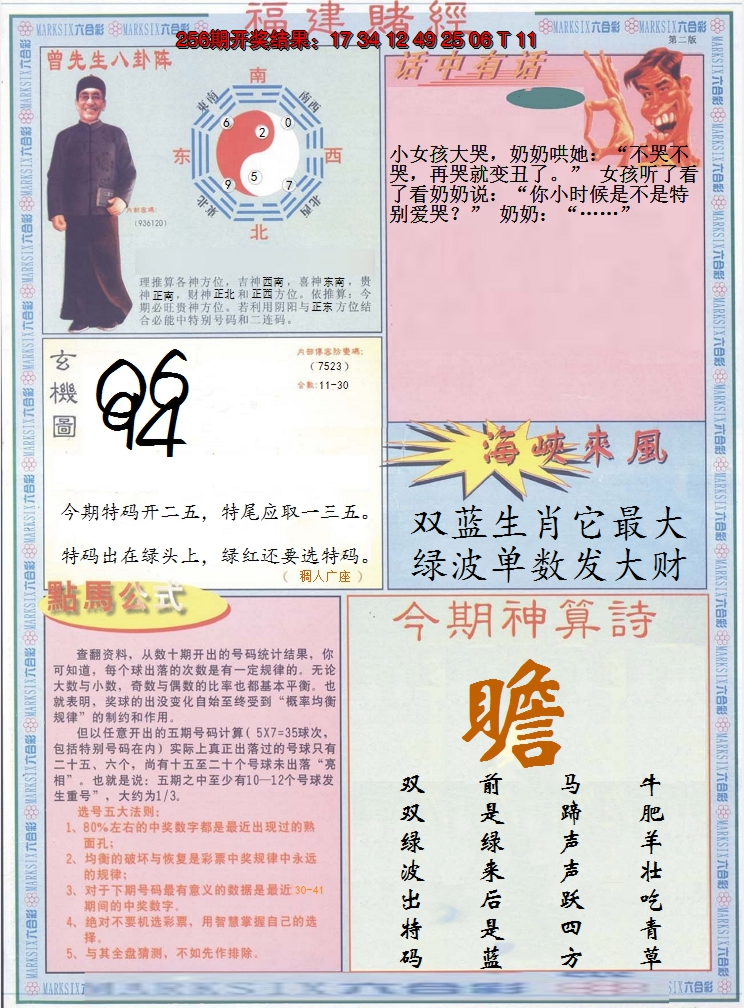 福建賭經
256期开奖结果：17 34 12 49 25 06 T 11
第二版
曾先生八卦阵
南
東南
南西
6
2
0
东
西
9
5
7
東北
北西
北
内部密碼:
（936120）
理推算各神方位，吉神西南，喜神东南，贵
神正南，财神正北和正西方位。依推算：今
期必旺贵神方位。若利用阴阳与正东方位结
合必能中特别号码和二连码。
话中有话
小女孩大哭，奶奶哄她：“不哭不
哭，再哭就变丑了。” 女孩听了看
了看奶奶说：“你小时候是不是特
别爱哭？” 奶奶：“……”
玄機圖
内部傳密防變碼:
（7523）
合数:11-30
今期特码开二五，特尾应取一三五。
特码出在绿头上，绿红还要选特码。
（ 稠人广座 ）
海峽來風
双蓝生肖它最大
绿波单数发大财
點馬公式
查翻资料，从数十期开出的号码统计结果，你
可知道，每个球出落的次数是有一定规律的。无论
大数与小数，奇数与偶数的比率也都基本平衡。也
就表明，奖球的出没变化自始至终受到“概率均衡
规律”的制约和作用。
但以任意开出的五期号码计算( 5X7=35球次，
包括特别号码在内) 实际上真正出落过的号球只有
二十五、六个，尚有十五至二十个号球未出落“亮
相”。也就是说：五期之中至少有10—12个号球发
生重号”，大约为1/3。
选号五大法则：
1、80%左右的中奖数字都是最近出现过的熟
面孔；
2、均衡的破坏与恢复是彩票中奖规律中永远
的规律；
3、对于下期号码最有意义的数据是最近 30-41
期间的中奖数字。
4、绝对不要机选彩票，用智慧掌握自己的选
择。
5、与其全盘猜测，不如先作排除。
今期神算詩
瞻
双双绿波出特码
前是绿来后是蓝
马蹄声声跃四方
牛肥羊壮吃青草
MARKSIX六合彩